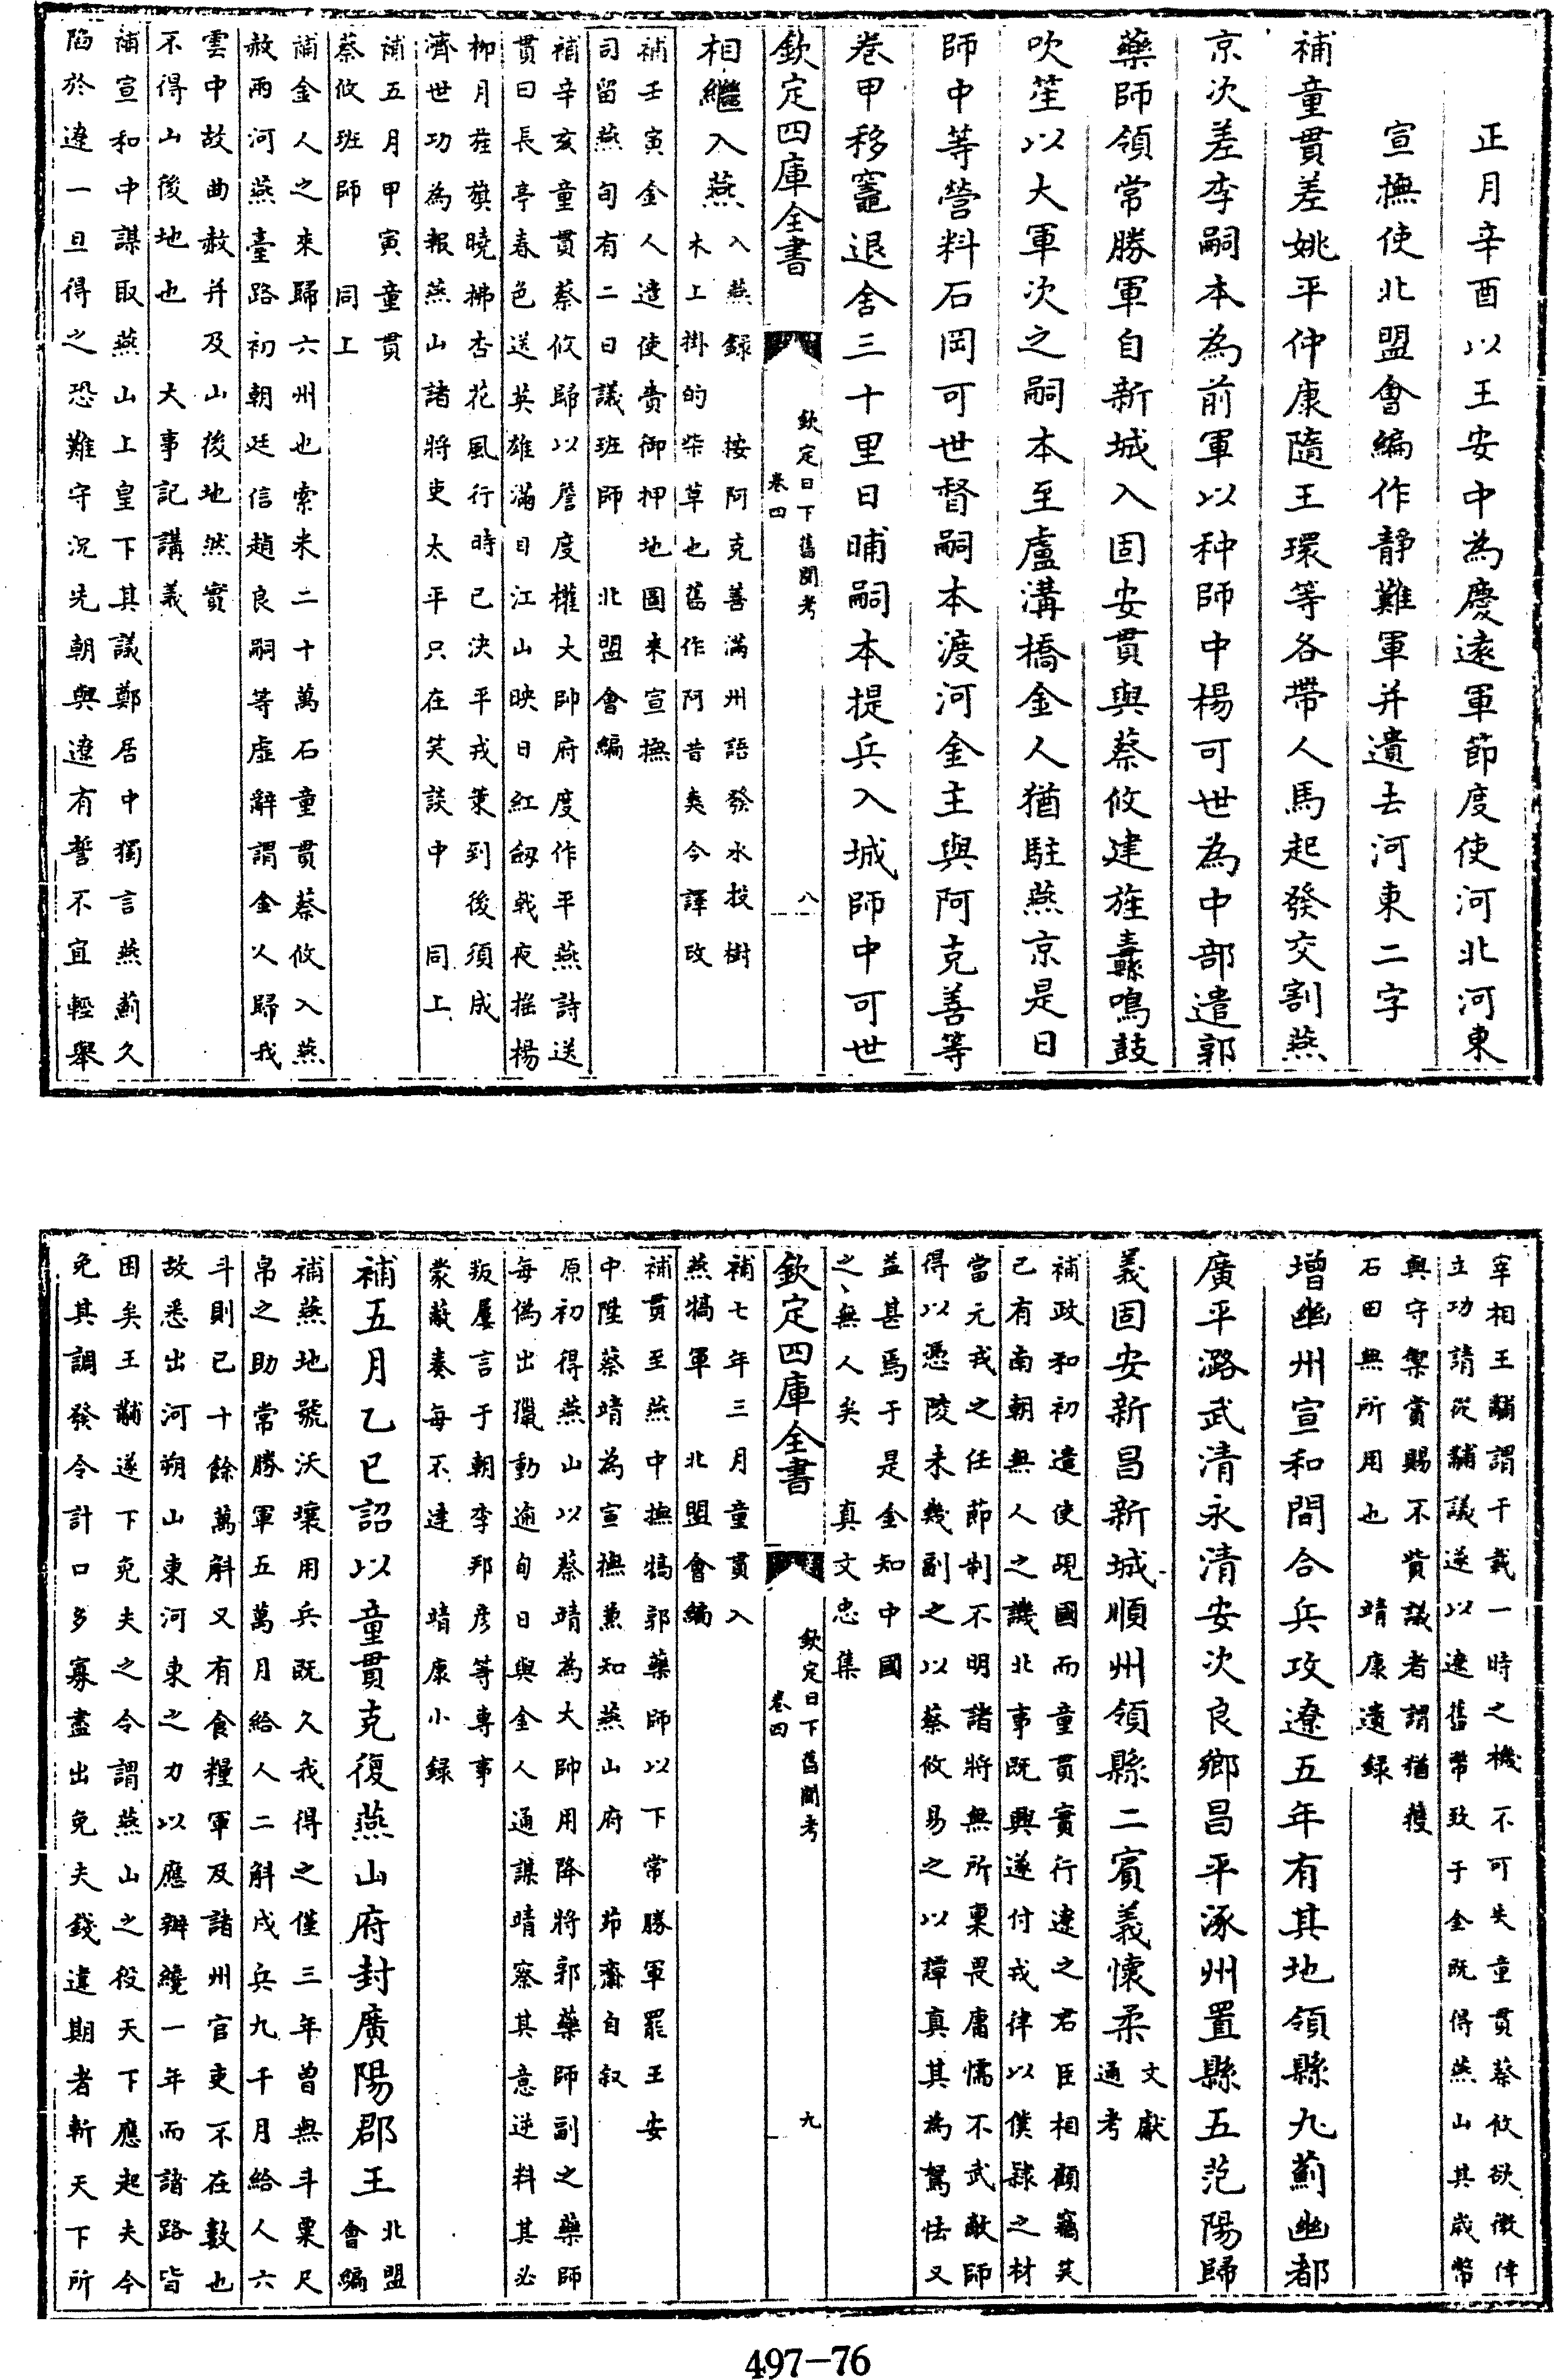 正月辛酉以王安中為慶遠軍節度使河北河東
宣撫使北盟會編作靜難軍并遺去河東二字
補童貫差姚平仲康隨王環等各帶人馬起發交割燕
京次差李嗣本為前軍以种師中楊可世為中部遣郭
藥師領常勝軍自新城入固安貫與蔡攸建旌纛鳴鼓
吹笙以大軍次之嗣本至盧溝橋金人猶駐燕京是日
師中等營料石岡可世督嗣本渡河金主與阿克善等
卷甲移竈退舍三十里日晡嗣本提兵入城師中可世
欽定四庫全書 欽定日下舊聞考 卷四 八
相繼入燕 入燕錄 按阿克善滿州語發水投樹
木上掛的柴草也舊作阿昔奭今譯改
補壬寅金人遣使賫御押地圖來宣撫
司留燕旬有二日議班師 北盟會編
補辛亥童貫蔡攸歸以詹度權大帥府度作平燕詩送
貫曰長亭春色送英雄滿目江山映日紅劔戟夜揺楊
柳月旌旗曉拂杏花風行時已決平戎策到後須成
濟世功為報燕山諸將吏太平只在笑談中 同上
補五月甲寅童貫
蔡攸班師 同上
補金人之來歸六州也索米二十萬石童貫蔡攸入燕
赦兩河燕臺路初朝廷信趙良嗣等虚辭謂金人歸我
雲中故曲赦并及山後地然實
不得山後地也 大事記講義
補宣和中謀取燕山上皇下其議鄭居中獨言燕薊久
陷於遼一旦得之恐難守況先朝與遼有誓不宜輕舉
宰相王黼謂千載一時之機不可失童貫蔡攸欲徼倖
立功請從黼議遂以遼舊幣致于金既得燕山其歲幣
與守禦賞賜不貲議者謂猶獲
石田無所用也 靖康遺録
增幽州宣和間合兵攻遼五年有其地領縣九薊幽都
廣平潞武清永清安次良鄉昌平涿州置縣五范陽歸
義固安新昌新城順州領縣二賓義懷柔 文獻
通考
補政和初遣使覘國而童貫實行遼之君臣相顧竊笑
已有南朝無人之譏北事既興遂付戎律以僕隸之材
當元戎之任節制不明諸將無所稟畏庸懦不武敵師
得以憑陵未幾副之以蔡攸易之以譚真其為駑怯又
益甚焉于是金知中國
之無人矣 真文忠集
欽定四庫全書 欽定日下舊聞考 卷四 九
補七年三月童貫入
燕犒軍 北盟會編
補貫至燕中撫犒郭藥師以下常勝軍罷王安
中陞蔡靖為宣撫兼知燕山府 茆齋自叙
原初得燕山以蔡靖為大帥用降將郭藥師副之藥師
每偽出獵動逾旬日與金人通謀靖察其意逆料其必
叛屢言于朝李邦彦等專事
蒙蔽奏每不達 靖康小録
補五月乙巳詔以童貫克復燕山府封廣陽郡王 北盟
會編
補燕地號沃壤用兵既久我得之僅三年曽無斗粟尺
帛之助常勝軍五萬月給人二斛戍兵九千月給人六
斗則已十餘萬斛又有食糧軍及諸州官吏不在數也
故悉出河朔山東河東之力以應辦纔一年而諸路皆
困矣王黼遂下免夫之令謂燕山之役天下應起夫今
免其調發令計口多寡盡出免夫錢違期者斬天下所
497-76